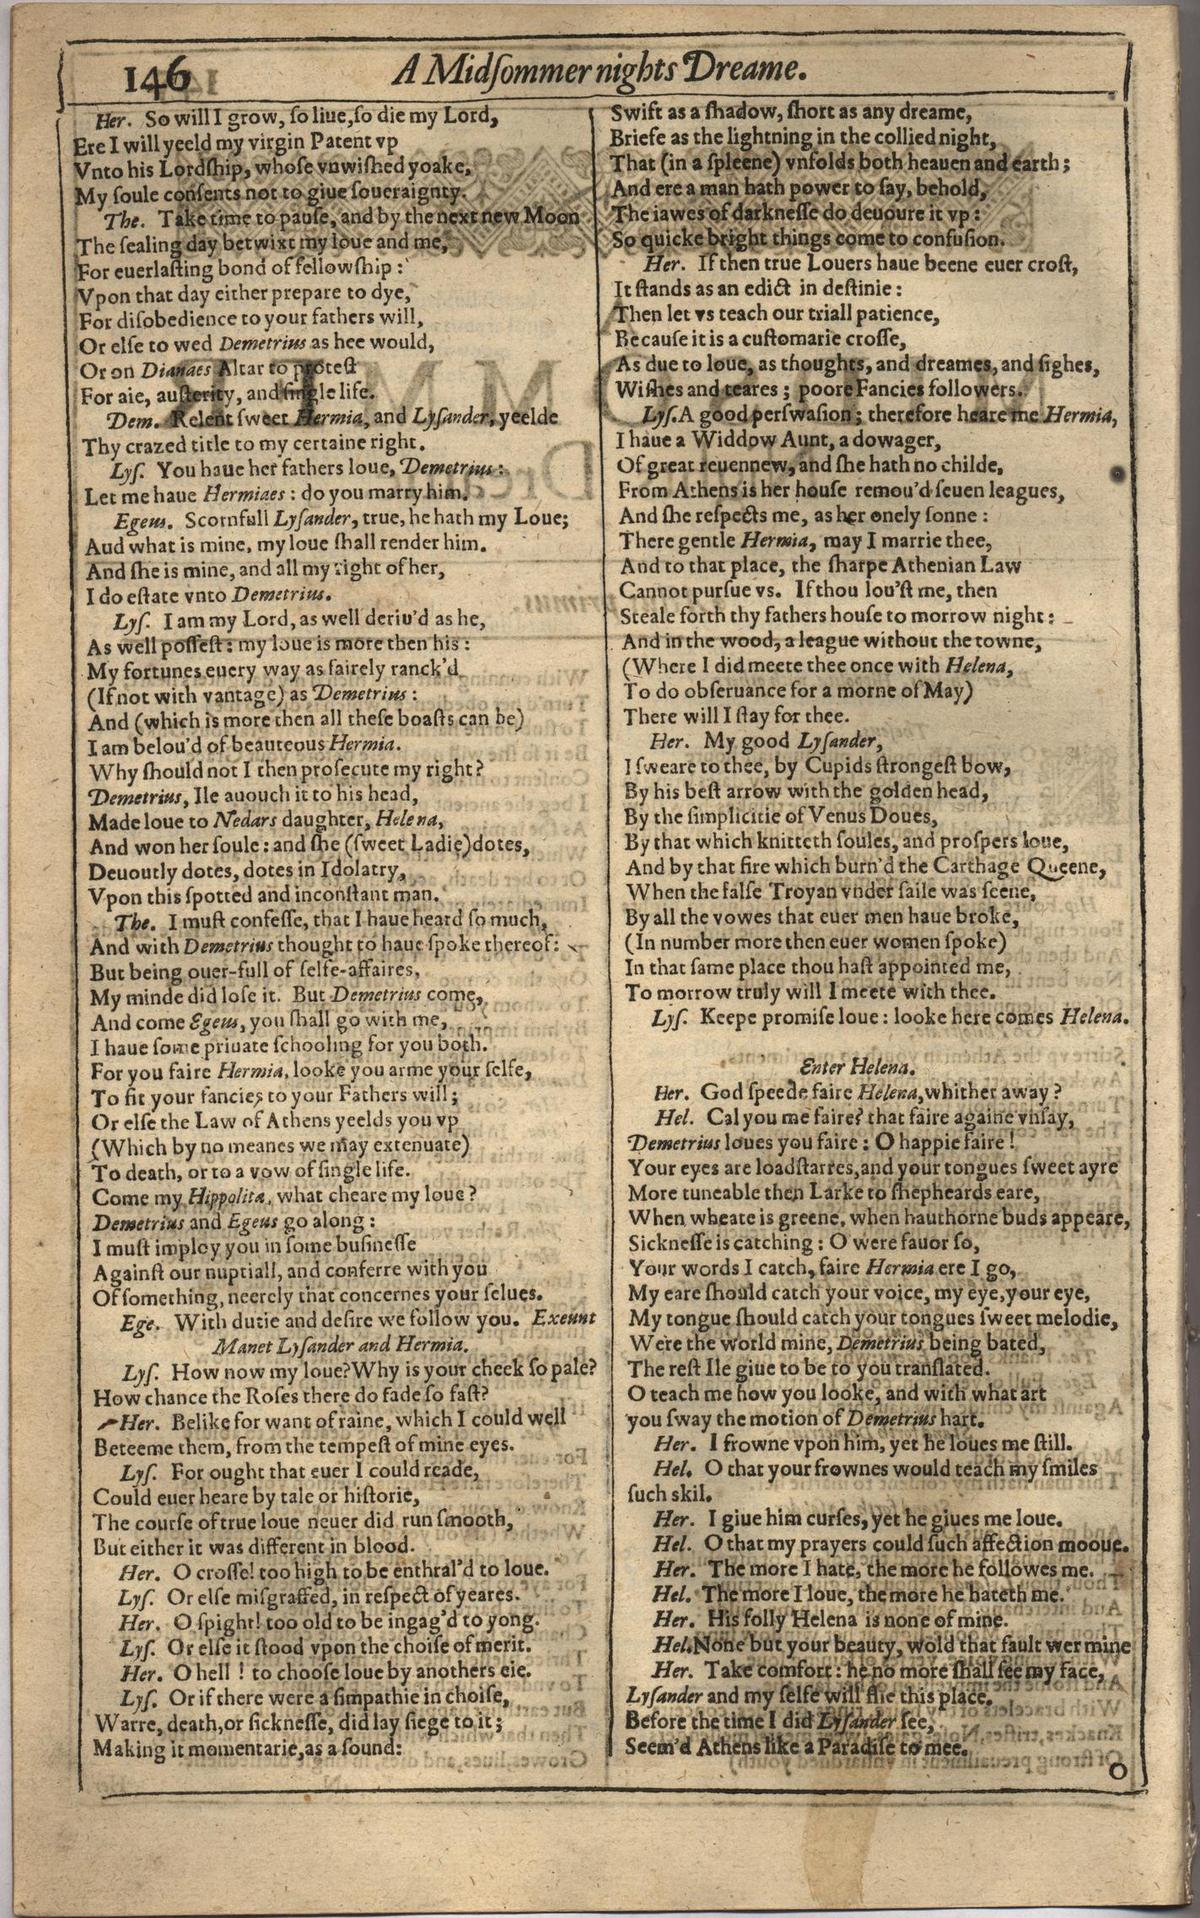 146
A Midſommer nights Dreame.
Her. So will I grow, ſo liue, ſo die my Lord,
Ere I will yeeld my virgin Patent vp
Vnto his Lordſhip, whoſe vnwiſhed yoake,
My ſoule conſents not to giue ſoueraignty.
The. Take time to pauſe, and by the next new Moon
The ſealing day betwixt my loue and me,
For euerlaſting bond of fellowſhip:
Vpon that day either prepare to dye,
For diſobedience to your fathers will,
Or elſe to wed Demetrius as hee would,
Or on Dianaes Altar to proteſt
For aie, auſterity, and ſingle life.
Dem. Relent ſweet Hermia, and Lyſander, yeelde
Thy crazed title to my certaine right.
Lyſ. You haue her fathers loue, Demetrius:
Let me haue Hermiaes: do you marry him.
Egeus. Scornfull Lyſander, true, he hath my Loue;
Aud what is mine, my loue ſhall render him.
And ſhe is mine, and all my right of her,
I do eſtate vnto Demetrius.
Lyſ. I am my Lord, as well deriu'd as he,
As well poſſeſt: my loue is more then his:
My fortunes euery way as fairely ranck'd
(If not with vantage) as Demetrius:
And (which is more then all theſe boaſts can be)
I am belou'd of beauteous Hermia.
Why ſhould not I then proſecute my right?
Demetrius, Ile auouch it to his head,
Made loue to Nedars daughter, Helena,
And won her ſoule: and ſhe (ſweet Ladie) dotes,
Deuoutly dotes, dotes in Idolatry,
Vpon this ſpotted and inconſtant man.
The. I muſt confeſſe, that I haue heard ſo much,
And with Demetrius thought to haue ſpoke thereof:
But being ouer-full of ſelfe-affaires,
My minde did loſe it. But Demetrius come,
And come Egeus, you ſhall go with me,
I haue ſome priuate ſchooling for you both.
For you faire Hermia, looke you arme your ſelfe,
To fit your fancies to your Fathers will;
Or elſe the Law of Athens yeelds you vp
(Which by no meanes we may extenuate)
To death, or to a vow of ſingle life.
Come my Hippolita, what cheare my loue?
Demetrius and Egeus go along:
I muſt imploy you in ſome buſineſſe
Againſt our nuptiall, and conferre with you
Of ſomething, neerely that concernes your ſelues.
Ege. With dutie and deſire we follow you. Exeunt
Manet Lyſander and Hermia.
Lyſ. How now my loue? Why is your cheek ſo pale?
How chance the Roſes there do fade ſo faſt?
Her. Belike for want of raine, which I could well
Beteeme them, from the tempeſt of mine eyes.
Lyſ. For ought that euer I could reade,
Could euer heare by tale or hiſtorie,
The courſe of true loue neuer did run ſmooth,
But either it was different in blood.
Her. O croſſe! too high to be enthral'd to loue.
Lyſ. Or elſe miſgraffed, in reſpect of yeares.
Her. O ſpight! too old to be ingag'd to yong.
Lyſ. Or elſe it ſtood vpon the choiſe of merit.
Her. O hell! to chooſe loue by anothers eie.
Lyſ. Or if there were a ſimpathie in choiſe,
Warre, death, or ſickneſſe, did lay ſiege to it;
Making it momentarie, as a ſound:
Swift as a ſhadow, ſhort as any dreame,
Briefe as the lightning in the collied night,
That (in a ſpleene) vnfolds both heauen and earth;
And ere a man hath power to ſay, behold,
The iawes of darkneſſe do deuoure it vp:
So quicke bright things come to confuſion.
Her. If then true Louers haue beene euer croſt,
It ſtands as an edict in deſtinie:
Then let vs teach our triall patience,
Becauſe it is a cuſtomarie croſſe,
As due to loue, as thoughts, and dreames, and ſighes,
Wiſhes and teares; poore Fancies followers.
Lyſ. A good perſwaſion; therefore heare me Hermia,
I haue a Widdow Aunt, a dowager,
Of great reuennew, and ſhe hath no childe,
From Athens is her houſe remou'd ſeuen leagues,
And ſhe reſpects me, as her onely ſonne:
There gentle Hermia, may I marrie thee,
And to that place, the ſharpe Athenian Law
Cannot purſue vs. If thou lou'ſt me, then
Steale forth thy fathers houſe to morrow night:
And in the wood, a league without the towne,
(Where I did meete thee once with Helena,
To do obſeruance for a morne of May)
There will I ſtay for thee.
Her. My good Lyſander,
I ſweare to thee, by Cupids ſtrongeſt bow,
By his beſt arrow with the golden head,
By the ſimplicitie of Venus Doues,
By that which knitteth ſoules, and proſpers loue,
And by that fire which burn'd the Carthage Queene,
When the falſe Troyan vnder ſaile was ſeene,
By all the vowes that euer men haue broke,
(In number more then euer women ſpoke)
In that ſame place thou haſt appointed me,
To morrow truly will I meete with thee.
Lyſ. Keepe promiſe loue: looke here comes Helena.
Enter Helena.
Her. God ſpeede faire Helena, whither away?
Hel. Cal you me faire? that faire againe vnſay,
Demetrius loues you faire: O happie faire!
Your eyes are loadſtarres, and your tongues ſweet ayre
More tuneable then Larke to ſhepheards eare,
When wheate is greene, when hauthorne buds appeare,
Sickneſſe is catching: O were fauor ſo,
Your words I catch, faire Hermia ere I go,
My eare ſhould catch your voice, my eye, your eye,
My tongue ſhould catch your tongues ſweet melodie,
Were the world mine, Demetrius being bated,
The reſt Ile giue to be to you tranſlated.
O teach me how you looke, and with what art
you ſway the motion of Demetrius hart.
Her. I frowne vpon him, yet he loues me ſtill.
Hel. O that your frownes would teach my ſmiles
ſuch skil.
Her. I giue him curſes, yet he giues me loue.
Hel. O that my prayers could ſuch affection mooue.
Her. The more I hate, the more he followes me.
Hel. The more I loue, the more he hateth me.
Her. His folly Helena is none of mine.
Hel. None but your beauty, wold that fault wer mine
Her. Take comfort: he no more ſhall ſee my face,
Lyſander and my ſelfe will flie this place.
Before the time I did Lyſander ſee,
Seem'd Athens like a Paradiſe to mee.
O